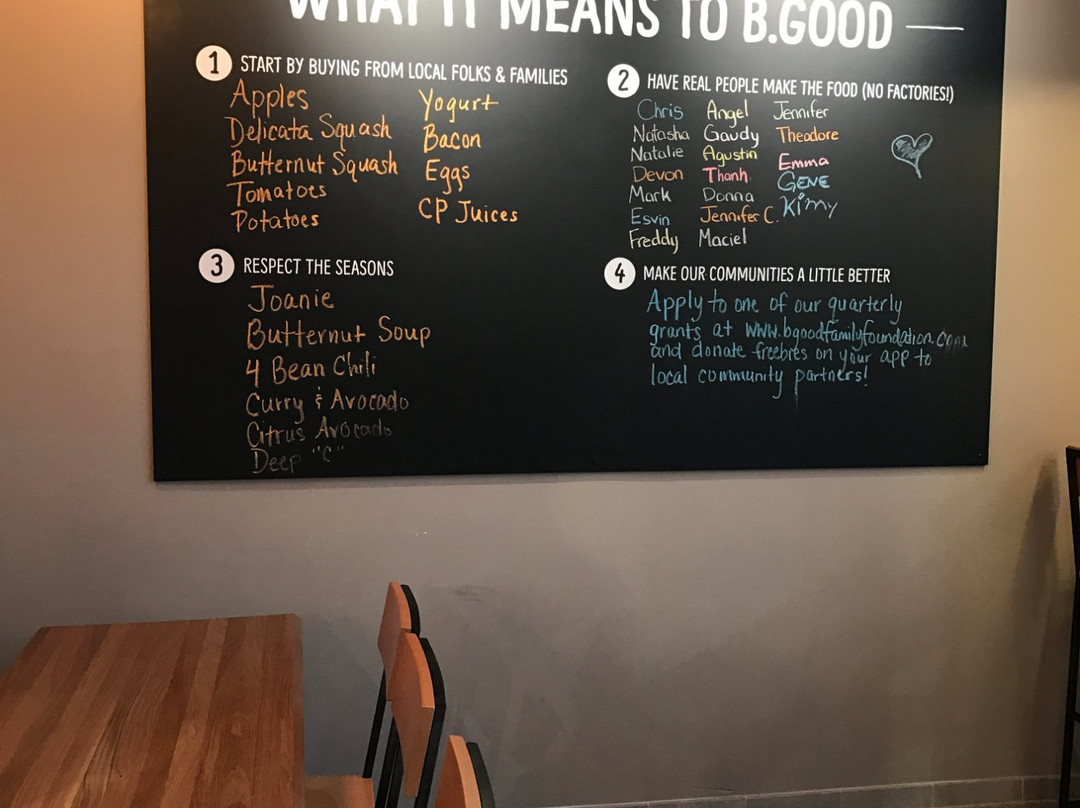 WHAT IT MEANS TO B.GOOD
1 START BY BUYING FROM LOCAL FOLKS & FAMILIES
Apples
Delicata Squash
Butternut Squash
Tomatoes
Potatoes
Yogurt
Bacon
Eggs
CP Juices
2 HAVE REAL PEOPLE MAKE THE FOOD (NO FACTORIES!)
Chris
Natasha
Natalie
Devon
Mark
Esvin
Freddy
Angel
Gaudy
Agustin
Thanh
Donna
Jennifer C.
Maciel
Jennifer
Theodore
Emma
GENE
Kimy
3 RESPECT THE SEASONS
Joanie
Butternut Soup
4 Bean Chili
Curry & Avocado
Citrus Avocado
Deep "C"
4 MAKE OUR COMMUNITIES A LITTLE BETTER
Apply to one of our quarterly
grants at www.bgoodfamilyfoundation.com
and donate freebies on your app to
local community partners!